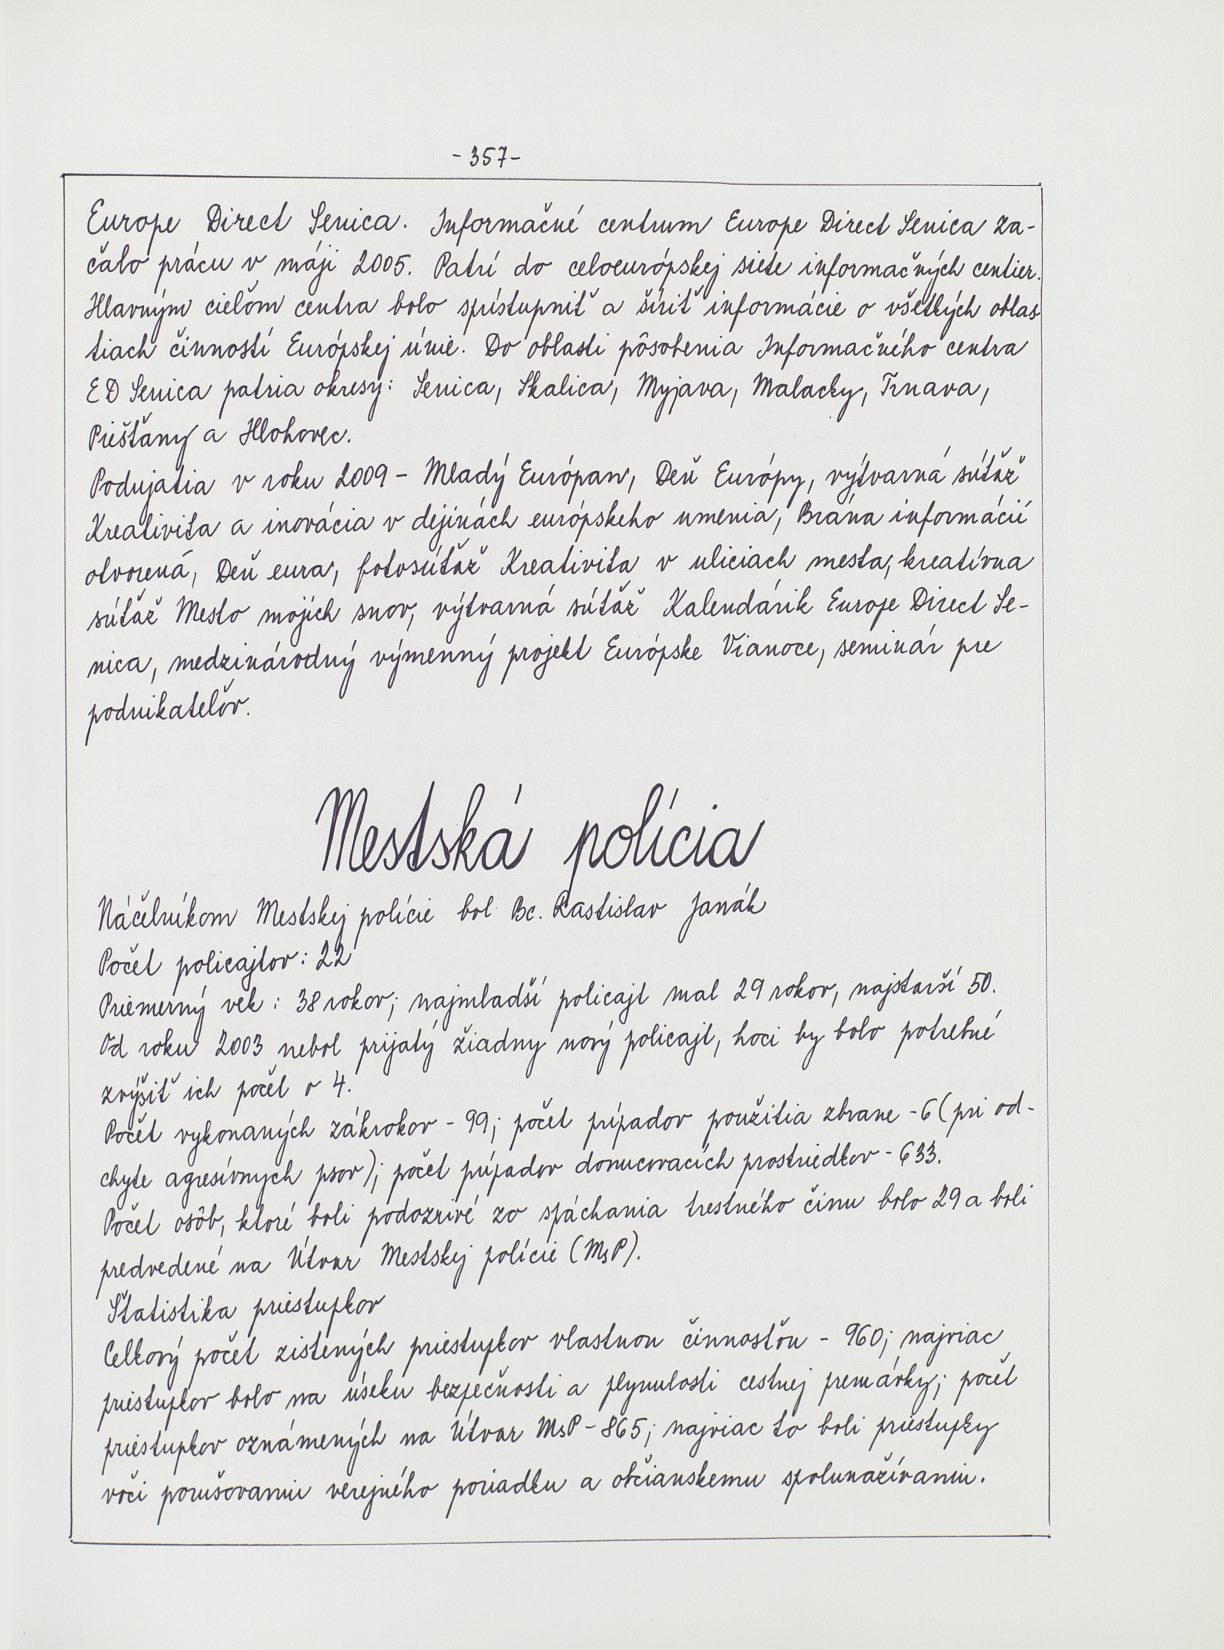 - 357 -
Europe Direct Senica. Informačné centrum Europe Direct Senica za-
čalo prácu v máji 2005. Patrí do celoeurópskej siete informačných centier.
Hlavným cieľom centra bolo sprístupniť a šíriť informácie o všetkých oblas
tiach činností Európskej únie. Do oblasti pôsobenia Informačného centra
ED Senica patria okresy: Senica, Skalica, Myjava, Malacky, Trnava,
Piešťany a Hlohovec.
Podujatia v roku 2009 - Mladý Európan, Deň Európy, výtvarná súťaž
Kreativita a inovácia v dejinách európskeho umenia, Brána informácií
otvorená, Deň eura, fotosúťaž Kreativita v uliciach mesta, kreatívna
súťaž Mesto mojich snov, výtvarná súťaž Kalendárik Europe Direct Se-
nica, medzinárodný výmenný projekt Európske Vianoce, seminár pre
podnikateľov.
Mestská polícia
Náčelníkom Mestskej polície bol Bc. Rastislav Janák
Počet policajtov: 22
Priemerný vek: 38 rokov; najmladší policajt mal 29 rokov, najstarší 50.
Od roku 2003 nebol prijatý žiadny nový policajt, hoci by bolo potrebné
zvýšiť ich počet o 4.
Počet vykonaných zákrokov - 99; počet prípadov použitia zbrane - 6 (pri od-
chyte agresívnych psov); počet prípadov donucovacích prostriedkov - 633.
Počet osôb, ktoré boli podozrivé zo spáchania trestného činu bolo 29 a boli
predvedené na Útvar Mestskej polície (MsP).
Štatistika priestupkov
Celkový počet zistených priestupkov vlastnou činnosťou - 960; najviac
priestupkov bolo na úseku bezpečnosti a plynulosti cestnej premávky; počet
priestupkov oznámených na Útvar MsP - 865; najviac to boli priestupky
voči porušovaniu verejného poriadku a občianskemu spolunažívaniu.